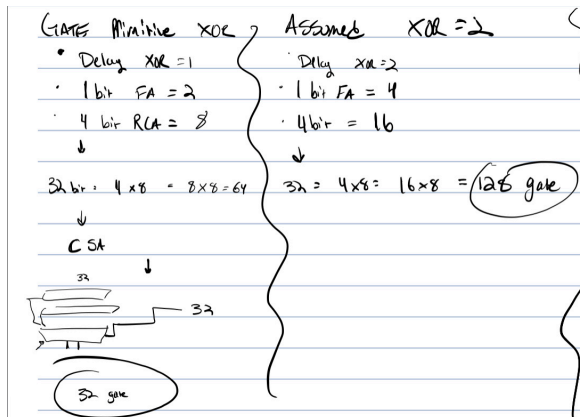 GATE Primitive XOR
• Delay XOR = 1
• 1 bit FA = 2
• 4 bit RCA = 8
↓
32 bit = 4 x 8 = 8 x 8 = 64
↓
CSA
↓
32
32
32 gate
Assumed XOR = 2
• Delay XOR = 2
• 1 bit FA = 4
• 4 bit = 16
↓
32 = 4 x 8 = 16 x 8 = 128 gate